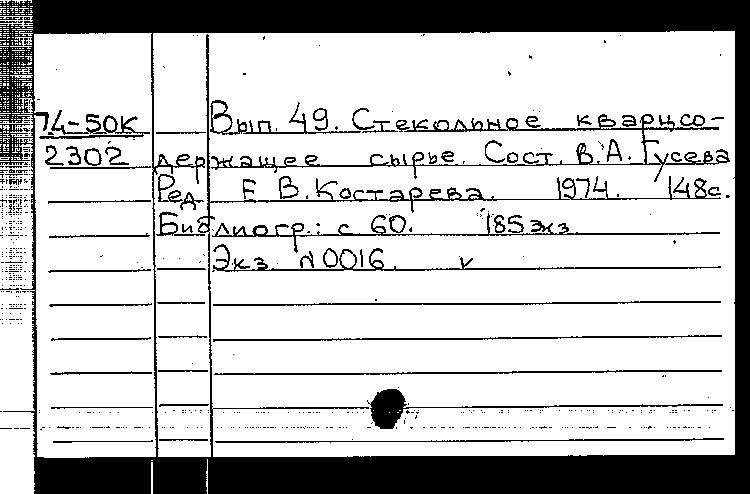 74-50К Вып. 49. Стекольное кварцсо-
2302 держащее сырье. Сост. В.А. Гусева
Ред Е В. Костарева. 1974. 148с.
Библиогр.: с 60. 185 экз
Экз. N0016. v